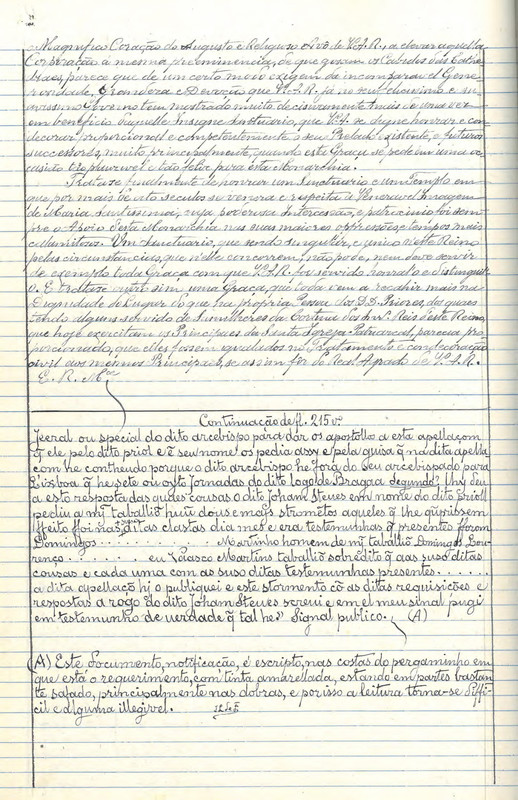 Magnifico Coração do Augusto e Religioso Avô de V.A.R., a elevar aquella
Corporação á mesma preeminencia, de que gosam os Cabidos das Cathe-
draes, parece que de um certo modo exigem da incomparavel Gene-
rosidade, Grandeza e Devoção que V.A.R. já no seu ... e su-
avissimo Governo tem mostrado muito decisivamente mais de uma vez
em beneficio daquelle Insigne Sanctuario, que V.A. se digne honrar e con-
decorar proporcional e competentemente o seu Prelado existente, e futuros
successores, muito principalmente, quando esta Graça se pede em uma oc-
casião tão plausivel e tão feliz para esta Monarchia.
Trata-se finalmente de honrar um Sanctuario e um Templo em
que por mais de oito seculos se venera e respeita a Veneravel Imagem
de Maria Santissima, cuja poderosa Intercessão, e patrocinio foi sem-
pre o Apoio desta Monarchia nas suas maiores oppressões e tempos mais
calamitosos. Um Sanctuario, que sendo singular, e unico neste Reino
pelas circunstancias, que nelle concorrem, não pode, nem deve servir
de exemplo toda Graça com que V.A.R. for servido honral-o e distinguil-
o. E trata-se outro sim de uma Graça, que toda vem a recahir mais na
Dignidade do Lugar do que na propria Pessoa dos D.D. Priores, dos quaes
tendo alguns servido de Sumilheres da Cortina dos Snr.es Reis deste Reino,
que hoje exercitam os Principaes da Santa Igreja Patriarcal, parecia pro-
porcionado, que elles fossem igualados no Tratamento e condecoração
civil aos mesmos Principaes, se assim for do Real Agrado de V.A.R.
E. R. M.ce
Continuação de fl. 215 v.
Jeeral ou special do dito arcebispo para dár os apostollos a esta apellaçom
q̃ ele pelo dito priol e ẽ seu nome os pedia assy e pela guisa q̃ na dita apella-
com he contheudo porque o dito arcebispo he fora do seu arcebispado para
Lixboa q̃ he sete ou oito Jornadas do dito logo de Bragaa segundo lhy deu
a esta resposta das quaes cousas o dito Joham Steves em nome do dito Prioll
pediu a mj̃ taballiõ huũ dous e mays strumẽtos aqueles q̃ lhe quixissem
ffeito foi nas ditas clastas dia mes e era testemunhas q̃ presentes fforom
Domingos . . . . . . . . Martinho homem de mj̃ taballiõ Domingos Lou-
renço . . . . . . . eu Vaasco Martins taballiõ sobredito q̃ aas suso ditas
cousas e cada uma com as suso ditas testemunhas presentes . . . . . .
a dita apellaçõ hj o publiquei e este stormento cõ as ditas requisições e
respostas a rogo do dito Joham Steves screvi e em el meu sinal pugi
em testemunho de verdade q̃ tal he. Signal publico. (A)
(A) Este documento, notificação, é escripto, nas costas do pergaminho em
que está o requerimento, com tinta amarellada, estando em partes bastan-
te safado, principalmente nas dobras, e por isso a leitura torna-se diffi-
cil e alguma illegivel.